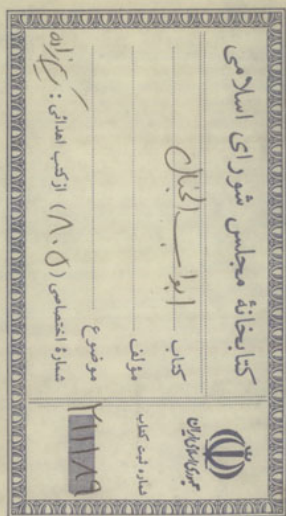 کتابخانهٔ مجلس شورای اسلامی
کتاب ابواب الجنان
مؤلف
موضوع
شمارهٔ اختصاصی (۸۰۵) از کتب اهدائی :
جمهوری اسلامی ایران
شماره ثبت کتاب